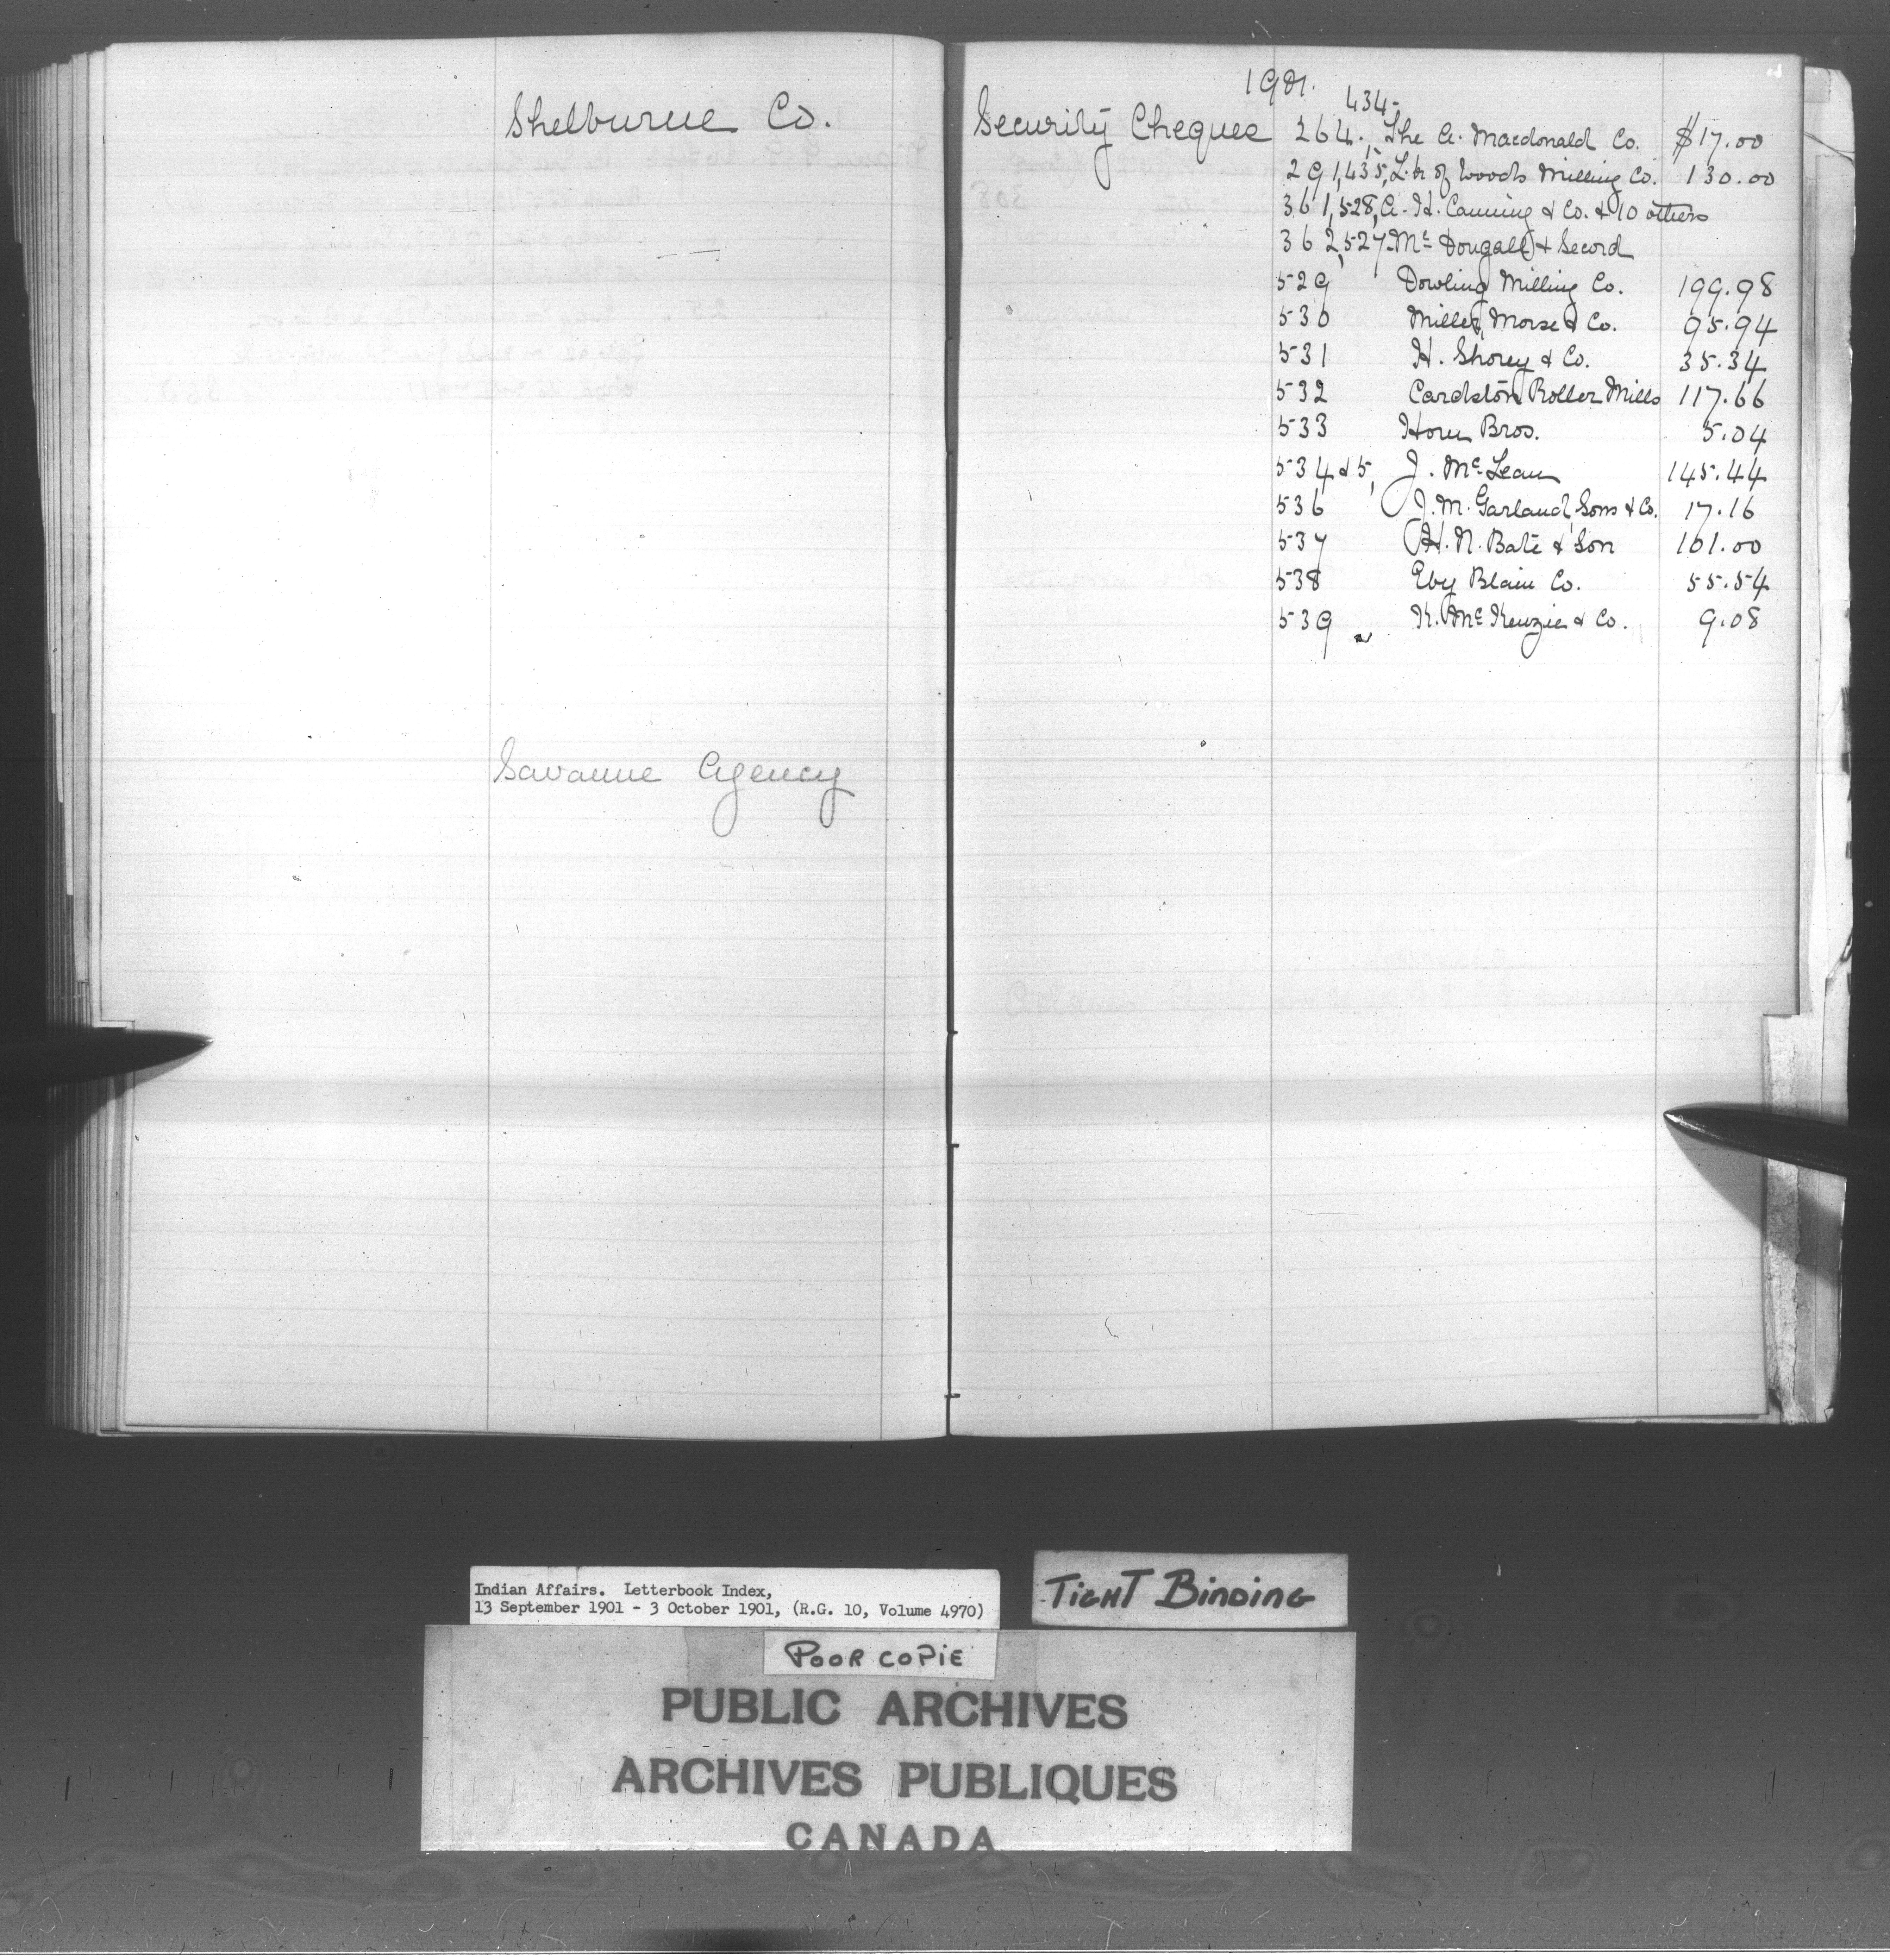 Shelburne Co.
Savanne Agency
1901.
434
Security Cheques 264, The A. Macdonald Co. $17.00
291,435, L. k of Woods Milling Co. 130.00
361,528, A. H. Canning & Co. & 10 others
362,527 Mc Dougall & Secord
529 Dowling Milling Co. 199.98
530 Miller, Morse & Co. 95.94
531 H. Shorey & Co. 35.34
532 Cardston Roller Mills 117.66
533 Horn Bros. 5.04
534 & 5, J. Mc Lean 145.44
536 J. M. Garland, Sons & Co. 17.16
537 H. N. Bate & Son 101.00
538 Eby Blain Co. 55.54
539 K. Mc Kenzie & Co. 9.08
Indian Affairs. Letterbook Index,
13 September 1901 - 3 October 1901, (R.G. 10, Volume 4970)
TIGHT BINDING
POOR COPIE
PUBLIC ARCHIVES
ARCHIVES PUBLIQUES
CANADA